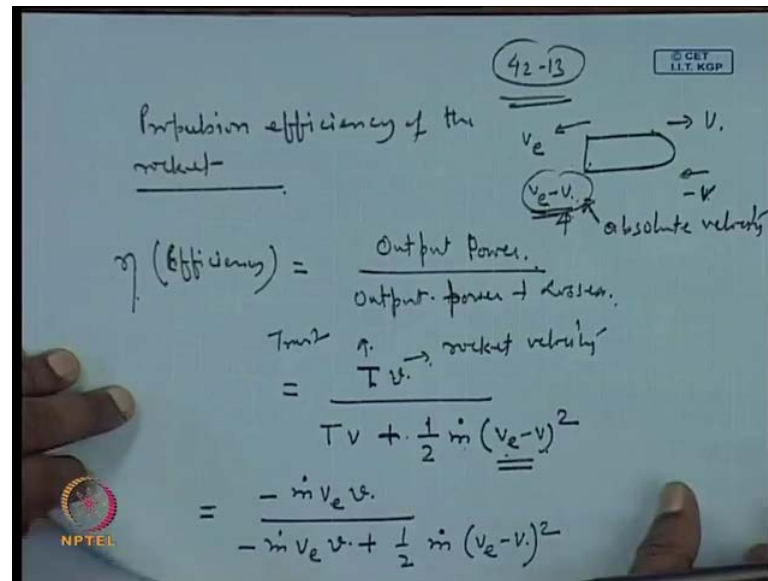 42-13
© CET
I.I.T. KGP
Propulsion efficiency of the
rocket
v_e ← → V.
← -V
v_e - V. absolute velocity
η (Efficiency) = Output Power. / Output power + Losses.
Trust
= T v. → rocket velocity / T v + 1/2 ṁ (v_e - v)²
= - ṁ v_e v. / - ṁ v_e v + 1/2 ṁ (v_e - v.)²
NPTEL